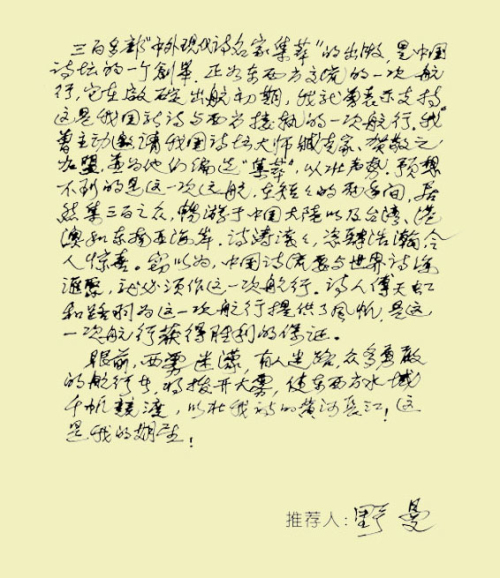 三百多部“中外现代诗名家集萃”的出版，是中国
诗坛的一个创举，正如东西方交流的一次航
行，它在启碇出航初期，我就曾表示支持
这是我国新诗与西方接轨的一次航行。我
曾主动邀请我国诗坛大师臧克家、贺敬之
加盟，并为他们编选“集萃”，以壮声势。预想
不到的是这一次远航，在短短的两年间，居
然集三百之众，畅游于中国大陆以及台湾、港
澳和东南亚海岸。诗涛滚滚，浩瀚令
人惊喜。窃以为，中国诗流要与世界诗海
汇聚，就必须作这一次航行。诗人傅天虹
和路羽为这一次航行提供了风帆，是这
一次航行获得胜利的保证。
眼前，西雾迷濛，有人迷路，众多勇敢
的航行者，将拨开大雾，使东西方水域
千帆竞渡，以壮我诗的黄河长江！这
是我的期望！
推荐人：野曼